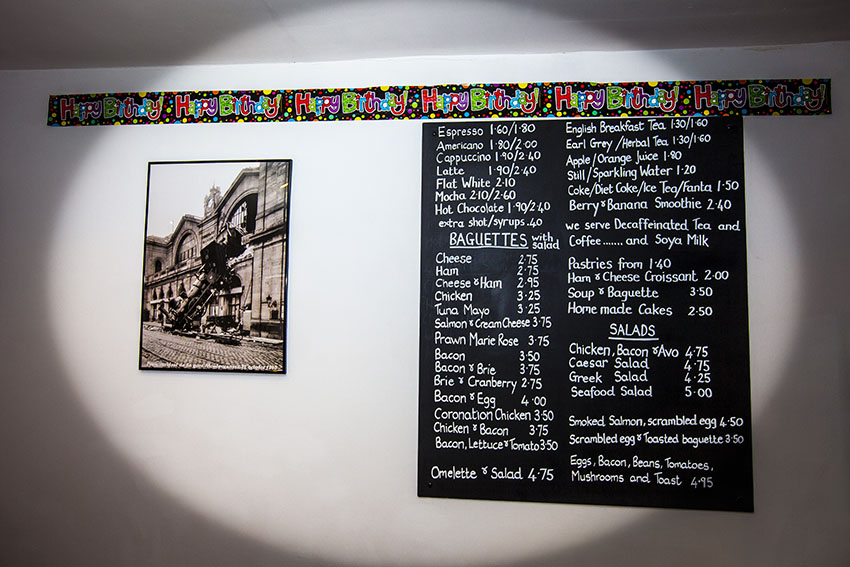 Happy Birthday! Happy Birthday! Happy Birthday! Happy Birthday! Happy Birthday! Happy Birthday!
Espresso 1·60/1·80
Americano 1·80/2·00
Cappuccino 1·90/2·40
Latte 1·90/2·40
Flat White 2·10
Mocha 2·10/2·60
Hot Chocolate 1·90/2·40
extra shot/syrups ·40
BAGUETTES with salad
Cheese 2·75
Ham 2·75
Cheese & Ham 2·95
Chicken 3·25
Tuna Mayo 3·25
Salmon & Cream Cheese 3·75
Prawn Marie Rose 3·75
Bacon 3·50
Bacon & Brie 3·75
Brie & Cranberry 2·75
Bacon & Egg 4·00
Coronation Chicken 3·50
Chicken & Bacon 3·75
Bacon, Lettuce & Tomato 3·50
Omelette & Salad 4·75
English Breakfast Tea 1·30/1·60
Earl Grey/Herbal Tea 1·30/1·60
Apple/Orange Juice 1·80
Still/Sparkling Water 1·20
Coke/Diet Coke/Ice Tea/Fanta 1·50
Berry & Banana Smoothie 2·40
we serve Decaffeinated Tea and
Coffee....... and Soya Milk
Pastries from 1·40
Ham & Cheese Croissant 2·00
Soup & Baguette 3·50
Home made Cakes 2·50
SALADS
Chicken, Bacon & Avo 4·75
Caesar Salad 4·75
Greek Salad 4·25
Seafood Salad 5·00
Smoked Salmon, scrambled egg 4·50
Scrambled egg & Toasted baguette 3·50
Eggs, Bacon, Beans, Tomatoes,
Mushrooms and Toast 4·95